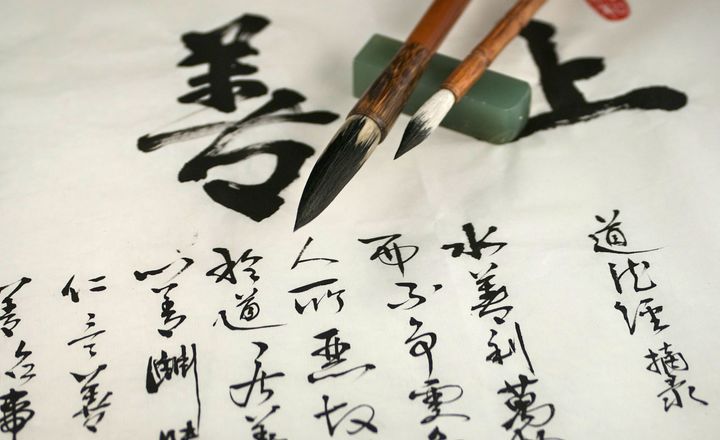 上善
道德經摘录
水善利萬
而不争處
人所惡故
於道居善
心善淵
仁言善
善治事